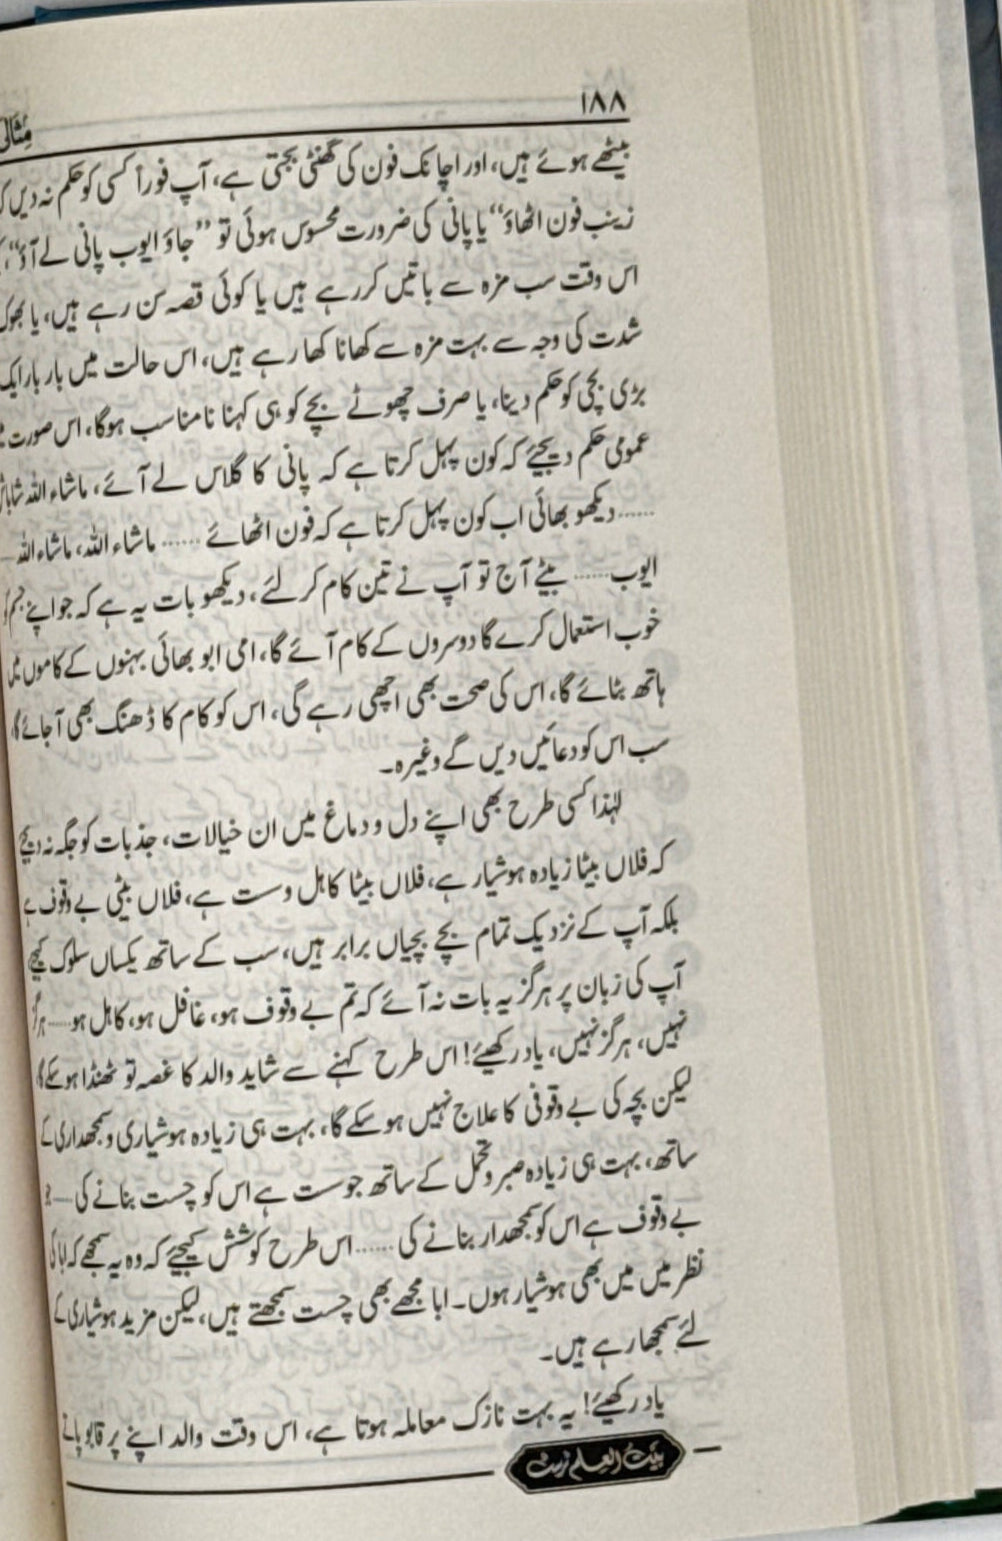 ۱۸۸
مثالی
بیٹھے ہوئے ہیں، اور اچانک فون کی گھنٹی بجتی ہے، آپ فوراً کسی کو حکم نہ دیں
زینب فون اٹھاؤ“ یا پانی کی ضرورت محسوس ہوئی تو ”جاؤ ایوب پانی لے آؤ“،
اس وقت سب مزہ سے باتیں کر رہے ہیں یا کوئی قصہ سن رہے ہیں، یا بھوک
شدت کی وجہ سے بہت مزہ سے کھانا کھا رہے ہیں، اس حالت میں بار بار ایک
بڑی بچی کو حکم دینا، یا صرف چھوٹے بچے کو ہی کہنا نامناسب ہوگا، اس صورت
عمومی حکم دیجیئے کہ کون پہل کرتا ہے کہ پانی کا گلاس لے آئے، ماشاء اللہ
...... دیکھو بھائی اب کون پہل کرتا ہے کہ فون اٹھائے ...... ماشاء اللہ، ماشاء اللہ ....
ایوب ...... بیٹے آج تو آپ نے تین کام کر لئے، دیکھو بات یہ ہے کہ جو اپنے جسم
خوب استعمال کرے گا دوسروں کے کام آئے گا، امی ابو بھائی بہنوں کے کاموں میں
ہاتھ بٹائے گا، اس کی صحت بھی اچھی رہے گی، اس کو کام کا ڈھنگ بھی آ جائے گا،
سب اس کو دعائیں دیں گے وغیرہ۔
لہٰذا کسی طرح بھی اپنے دل و دماغ میں ان خیالات، جذبات کو جگہ نہ دیجئے
کہ فلاں بیٹا زیادہ ہوشیار ہے، فلاں بیٹا کاہل و سست ہے، فلاں بیٹی بے وقوف ہے
بلکہ آپ کے نزدیک تمام بچے بچیاں برابر ہیں، سب کے ساتھ یکساں سلوک کیجئے
آپ کی زبان پر ہرگز یہ بات نہ آئے کہ تم بے وقوف ہو، غافل ہو، کاہل ہو ...... ہرگز
نہیں، ہرگز نہیں، یاد رکھیئے! اس طرح کہنے سے شاید والد کا غصہ تو ٹھنڈا ہو سکے گا،
لیکن بچہ کی بے وقوفی کا علاج نہیں ہو سکے گا، بہت ہی زیادہ ہوشیاری و سمجھداری کے
ساتھ، بہت ہی زیادہ صبر و تحمل کے ساتھ جو سست ہے اس کو چست بنانے کی .... جو
بے وقوف ہے اس کو سمجھدار بنانے کی ...... اس طرح کوشش کیجیئے کہ وہ یہ سمجھے کہ ابا کی
نظر میں میں بھی ہوشیار ہوں۔ ابا مجھے بھی چست سمجھتے ہیں، لیکن مزید ہوشیاری کے
لئے سمجھا رہے ہیں۔
یاد رکھیئے! یہ بہت نازک معاملہ ہوتا ہے، اس وقت والد اپنے پر قابو پاتے
بیت العلم ٹرسٹ